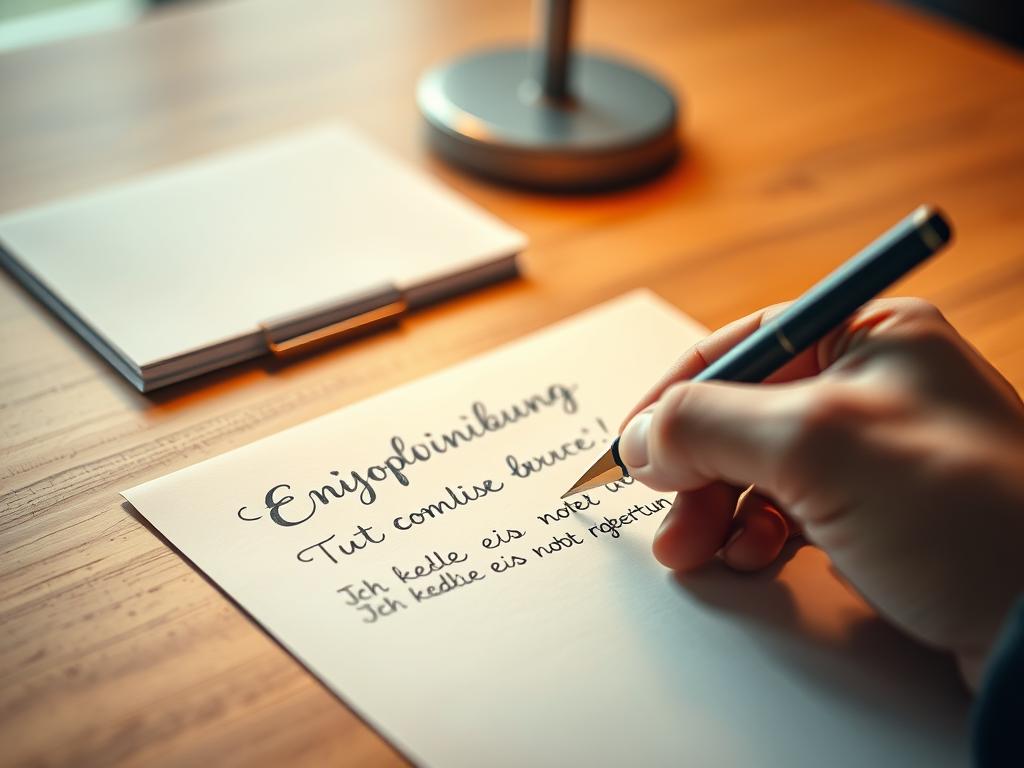 Enijoploinibung
Tut comlise burce!
Ich kedle eis noter
Ich kedbe eis nobt rgbertun